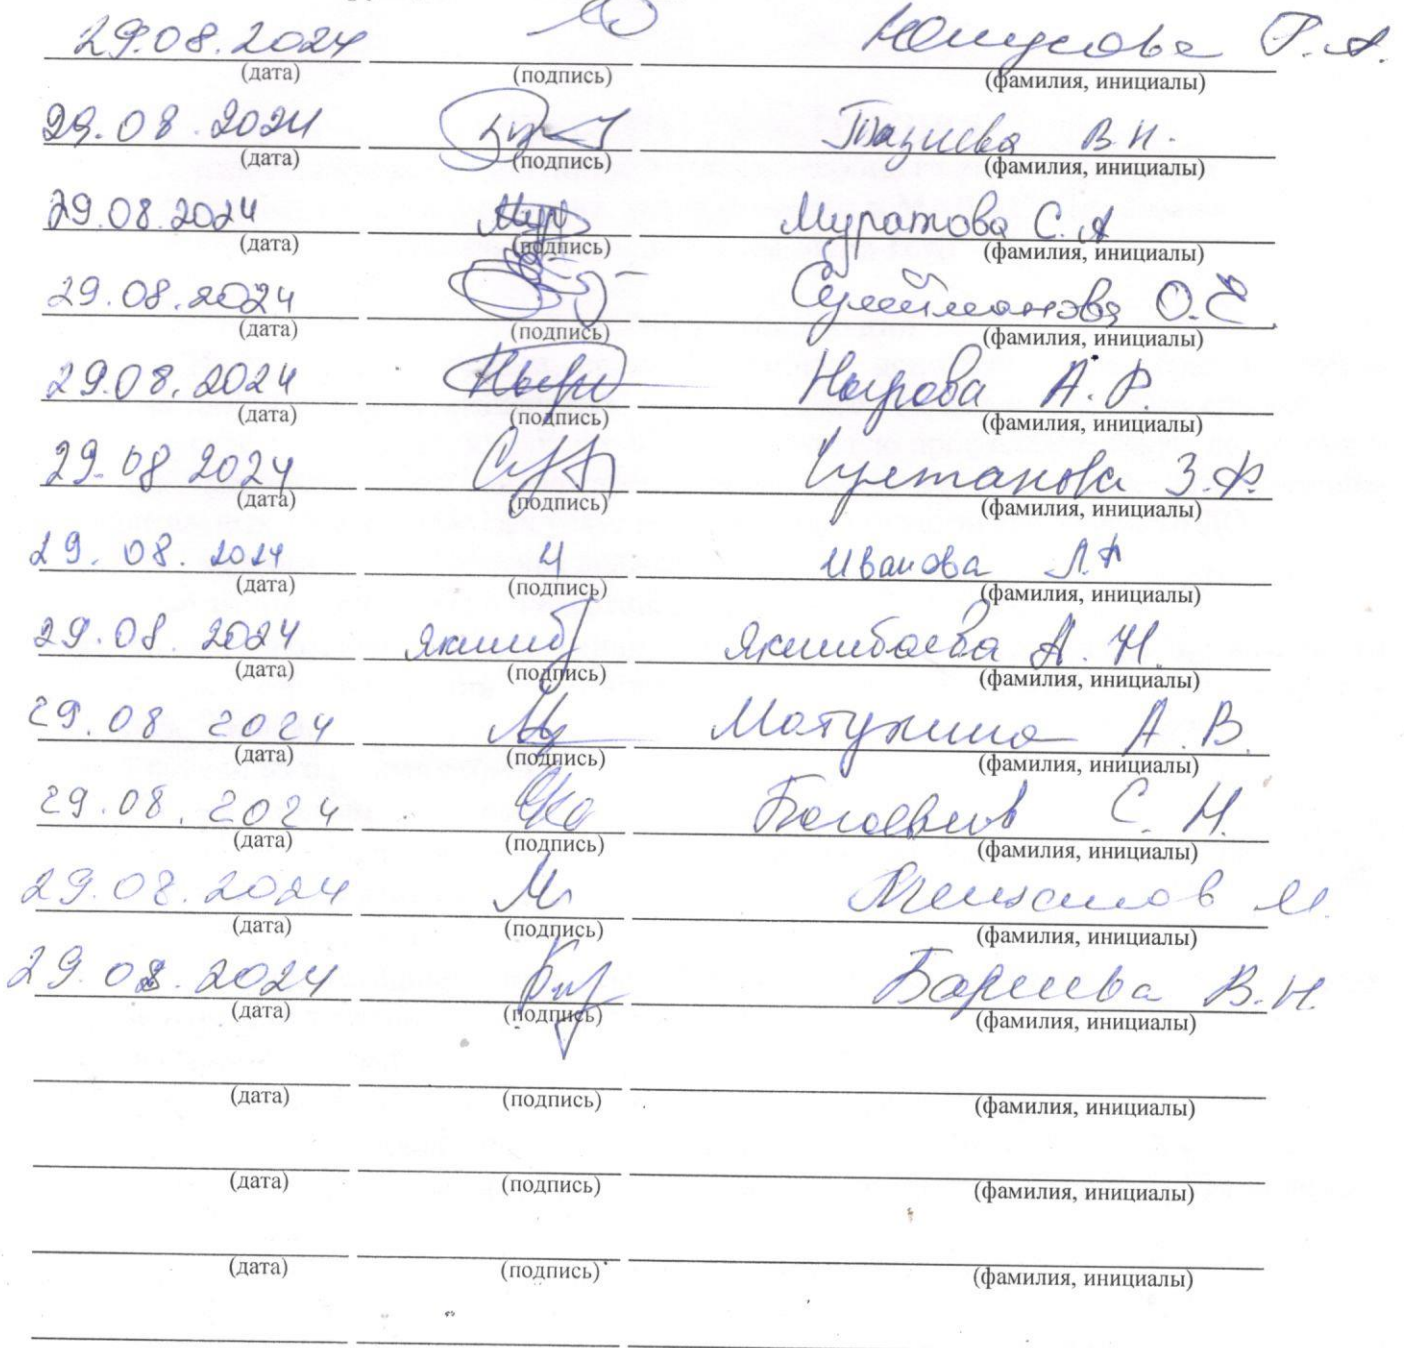 29.08.2024 Юнусова Р.А.
(дата) (подпись) (фамилия, инициалы)
29.08.2024 Тазиева В.Н.
(дата) (подпись) (фамилия, инициалы)
29.08.2024 Мур Муратова С.А
(дата) (подпись) (фамилия, инициалы)
29.08.2024 Сулейманова О.
(дата) (подпись) (фамилия, инициалы)
29.08.2024 Нырова А.Р.
(дата) (подпись) (фамилия, инициалы)
29.08 2024 Султанова З.Ф.
(дата) (подпись) (фамилия, инициалы)
29.08.2024 И Иванова Л.А
(дата) (подпись) (фамилия, инициалы)
29.08 2024 Якшиб Якшибаева А.Н.
(дата) (подпись) (фамилия, инициалы)
29.08 2024 Матунина А.В.
(дата) (подпись) (фамилия, инициалы)
29.08.2024 С.Н.
(дата) (подпись) (фамилия, инициалы)
29.08.2024 М
(дата) (подпись) (фамилия, инициалы)
29.08.2024 Бариева В.Н.
(дата) (подпись) (фамилия, инициалы)
(дата) (подпись) (фамилия, инициалы)
(дата) (подпись) (фамилия, инициалы)
(дата) (подпись) (фамилия, инициалы)